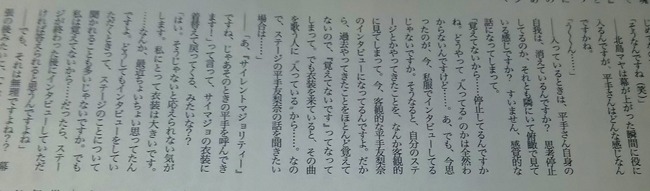 じめなんだよね(笑)。
——北島マヤは幕が上がった瞬間に役に
入るんですが、平手さんはどんな感じなん
ですかね。
「うぅーん……」
——入っているときは、平手さん自身の
自我は、消えているんですか? 思考停止
してるのか、それとも隣にいて俯瞰で見て
いる感じですか? すいません、感覚的な
話になってしまって。
「覚えてないから……停止してるんですか
ね。どうやって〝入ってる〟のかは全然わ
からないんですけど……。あ、でも、今思
ったのが、今、私服でインタビューしてる
じゃないですか。そうなると、自分のステ
ージとかやってきたことを、なんか客観的
に見てしまって、今、客観的な平手友梨奈
のインタビューになってるんですよ。だか
ら、過去やってきたことをほとんど覚えて
ないので、〝覚えてないです〟ってなって
しまって。でも衣装を来ていると、その曲
を歌う人に〝入っている〟から……。なの
で、ステージの平手友梨奈の話を聞きたい
場合は……」
——あ、『サイレントマジョリティー』
ですね、じゃあそのときの平手を呼んでき
ます! って言って、サイマジョの衣装に
着替えて戻ってくる、みたいな??
「はい。そうじゃないと応えられない気が
します。私にとって衣装は大きいです。
……なんか、最近ちょいちょい思ってたん
ですよ。どうしてもインタビューをしてい
ただくときって、ステージのことについて
聞かれることも多いじゃないですか。でも
私は覚えてないから……だったら、ステー
ジが終わった後にインタビューしていただ
ければ答えられると思うんですよね」
——でも、それは無理ですよね?? 幕
張の後みたいに、